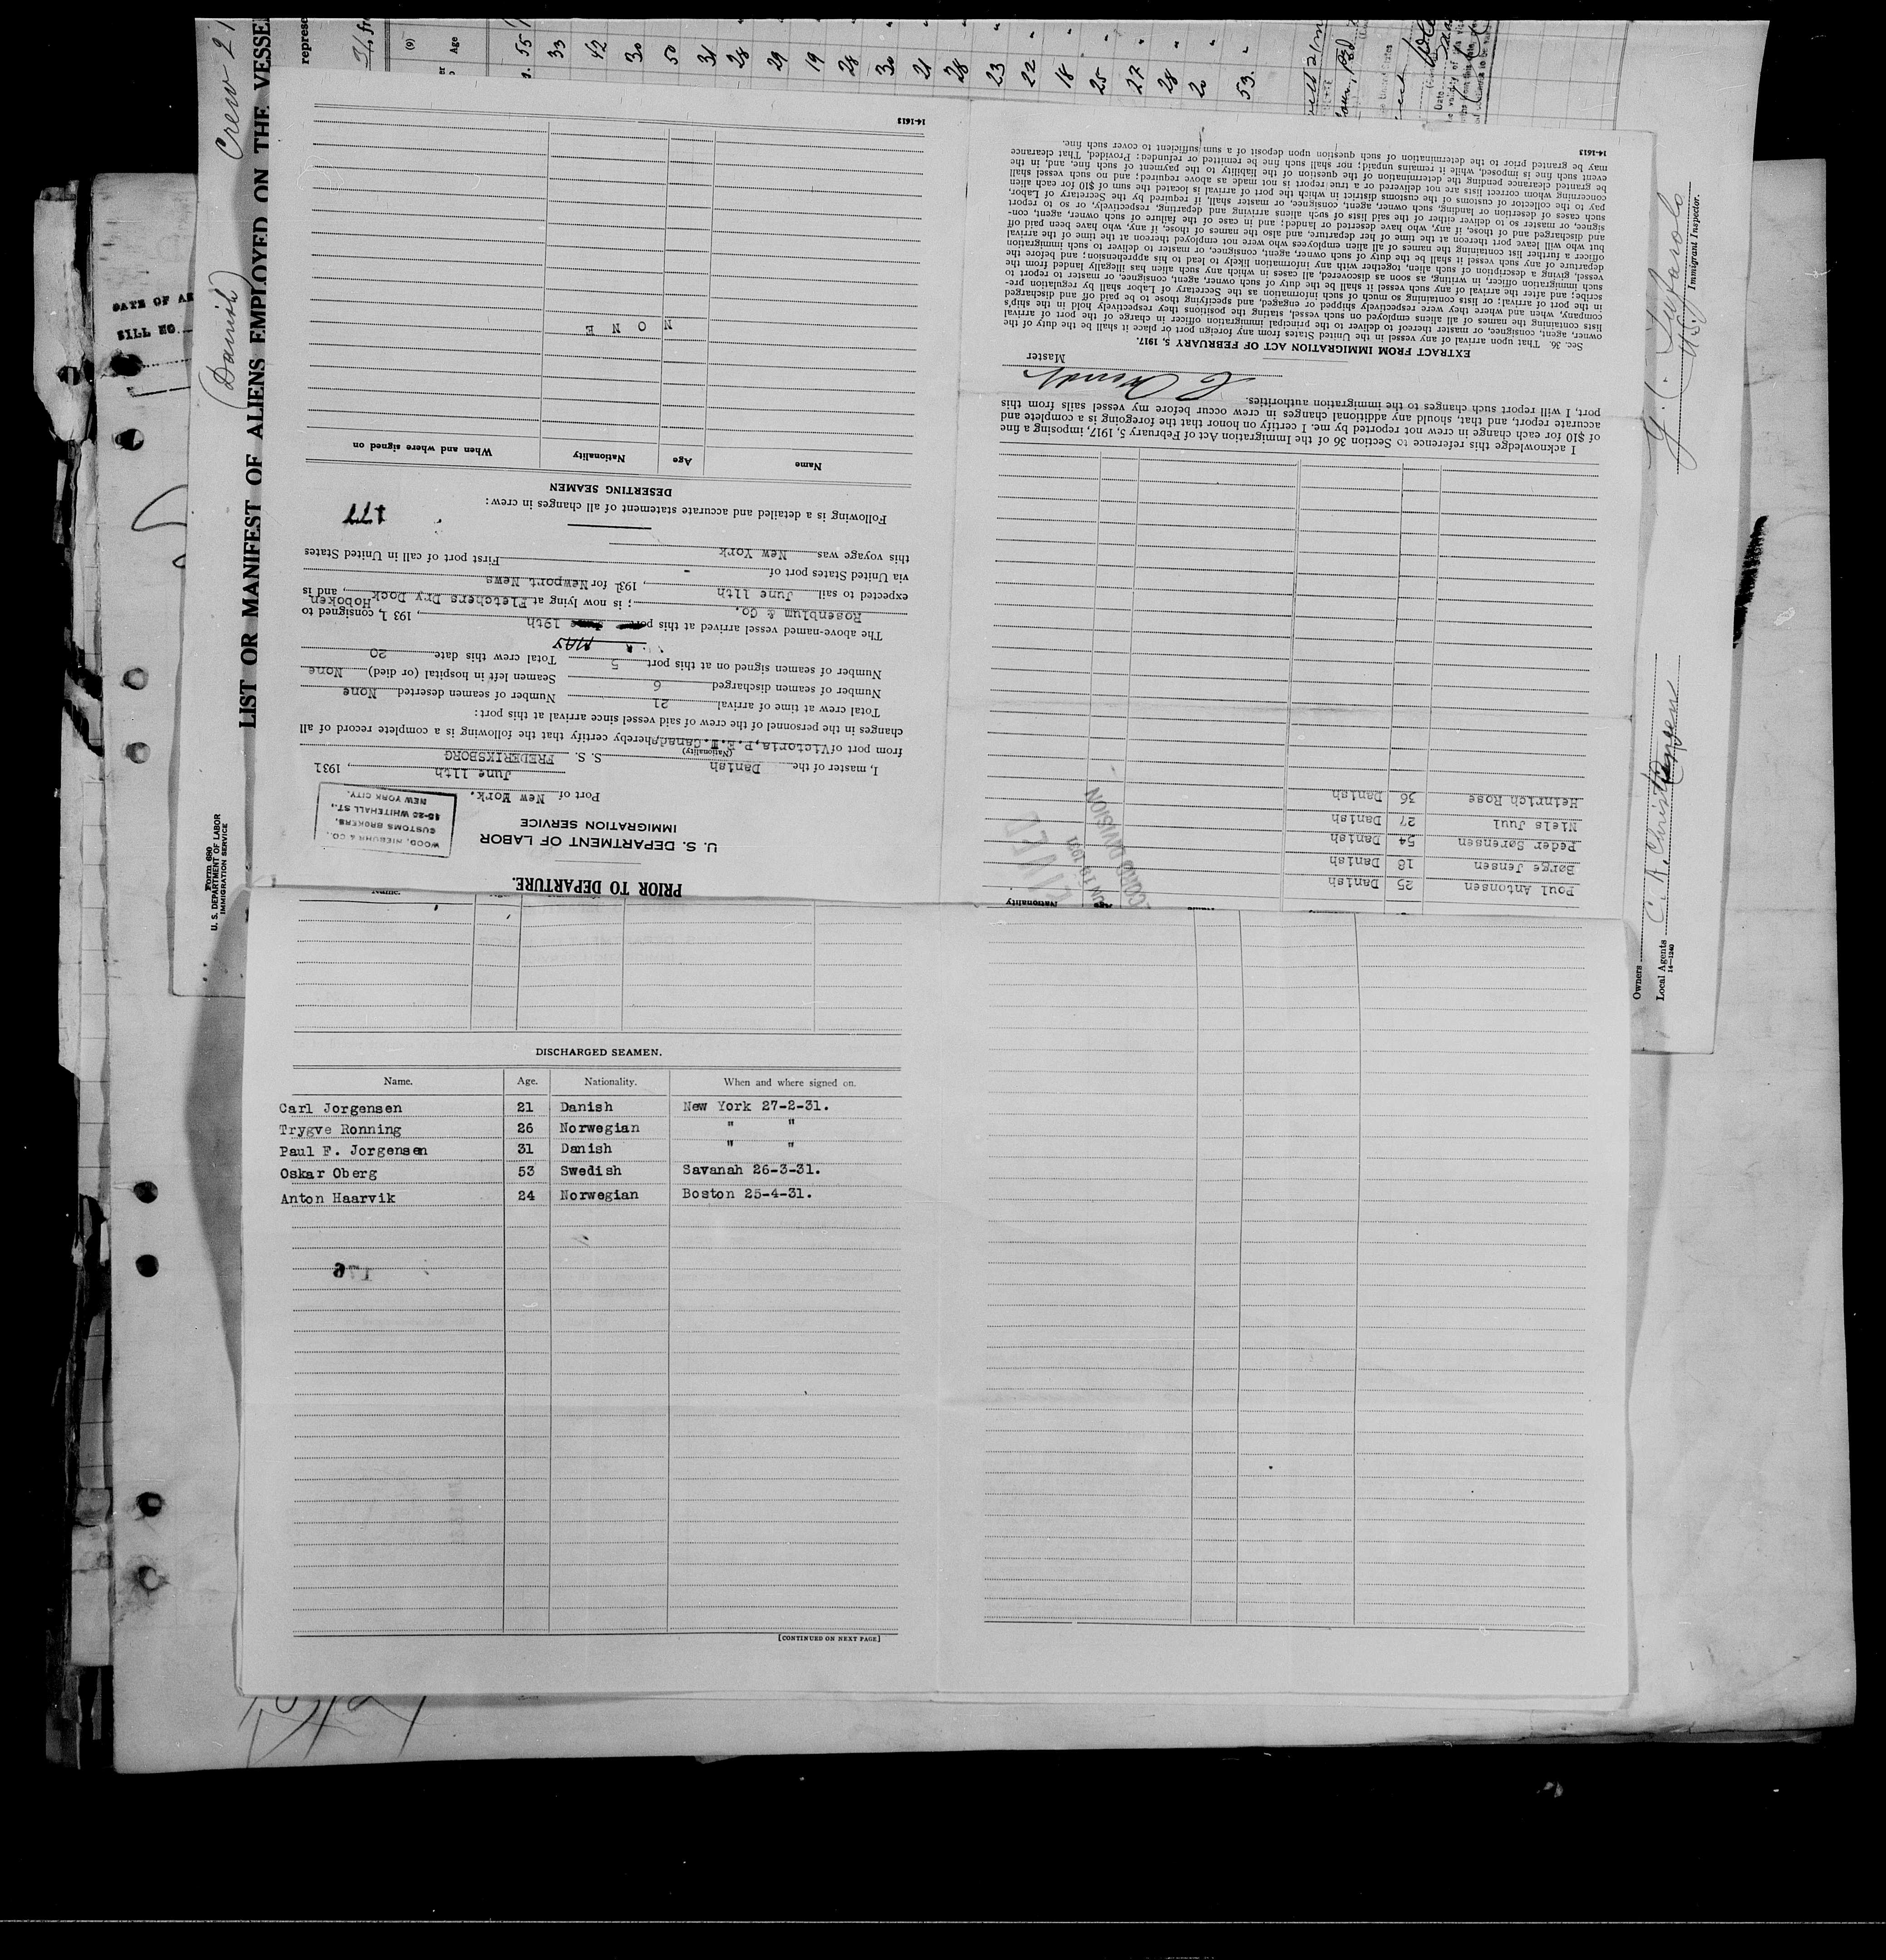 Crew 21
(Danish)
LIST OR MANIFEST OF ALIENS EMPLOYED ON THE VESSE
Form 680
U. S. DEPARTMENT OF LABOR
IMMIGRATION SERVICE
DATE OF AR
BILL NO.
represe
(9)
Age
55
33
42
30
50
31
28
29
19
28
30
21
28
23
22
18
25
27
28
20
53.
Immigrant Inspector.
Owners
Local Agents C. A. Christensen
14—1240
PRIOR TO DEPARTURE.
U. S. DEPARTMENT OF LABOR
IMMIGRATION SERVICE
WOOD, NIEBUHR & CO.,
CUSTOMS BROKERS,
15-25 WHITEHALL ST.,
NEW YORK CITY.
Port of New York.
June 11th, 1931
I, master of the Danish S. S. FREDERIKSBORG
(Nationality)
from port of Victoria, P.E.I. Canada, hereby certify that the following is a complete record of all
changes in the personnel of the crew of said vessel since arrival at this port:
Total crew at time of arrival 21 Number of seamen deserted None
Number of seamen discharged 6 Seamen left in hospital (or died) None
Number of seamen signed on at this port 5 Total crew this date 20
MAY
The above-named vessel arrived at this port June 19th, 1931, consigned to
Rosenblum & Co.; is now lying at Fletchers Dry Dock Hoboken, and is
expected to sail June 11th, 1931 for Newport News
via United States port of - First port of call in United States
this voyage was New York
177
Following is a detailed and accurate statement of all changes in crew:
DESERTING SEAMEN
Name Age Nationality When and where signed on
N O N E
14-1613
Name Age Nationality
Poul Antonsen 25 Danish
Børge Jensen 18 Danish
Peder Sørensen 54 Danish
Niels Juul 27 Danish
Heinrich Rose 36 Danish
I acknowledge this reference to Section 36 of the Immigration Act of February 5, 1917, imposing a fine
of $10 for each change in crew not reported by me. I certify on honor that the foregoing is a complete and
accurate report, and that, should any additional changes in crew occur before my vessel sails from this
port, I will report such changes to the immigration authorities.
Master
EXTRACT FROM IMMIGRATION ACT OF FEBRUARY 5, 1917.
Sec. 36. That upon arrival of any vessel in the United States from any foreign port or place it shall be the duty of the
owner, agent, consignee, or master thereof to deliver to the principal immigration officer in charge of the port of arrival
lists containing the names of all aliens employed on such vessel, stating the positions they respectively hold in the ship's
company, when and where they were respectively shipped or engaged, and specifying those to be paid off and discharged
in the port of arrival; or lists containing so much of such information as the Secretary of Labor shall by regulation pre-
scribe; and after the arrival of any such vessel it shall be the duty of such owner, agent, consignee, or master to report to
such immigration officer, in writing, as soon as discovered, all cases in which any such alien has illegally landed from the
vessel, giving a description of such alien, together with any information likely to lead to his apprehension; and before the
departure of any such vessel it shall be the duty of such owner, agent, consignee, or master to deliver to such immigration
officer a further list containing the names of all alien employees who were not employed thereon at the time of the arrival
but who will leave port thereon at the time of her departure, and also the names of those, if any, who have been paid off
and discharged and of those, if any, who have deserted or landed; and in case of the failure of such owner, agent, con-
signee, or master so to deliver either of the said lists of such aliens arriving and departing, respectively, or so to report
such cases of desertion or landing, such owner, agent, consignee, or master shall, if required by the Secretary of Labor,
pay to the collector of customs of the customs district in which the port of arrival is located the sum of $10 for each alien
concerning whom correct lists are not delivered or a true report is not made as above required; and no such vessel shall
be granted clearance pending the determination of the question of the liability to the payment of such fine, and, in the
event such fine is imposed, while it remains unpaid; nor shall such fine be remitted or refunded: Provided, That clearance
may be granted prior to the determination of such question upon deposit of a sum sufficient to cover such fine.
14-1613
DISCHARGED SEAMEN.
Name. Age. Nationality. When and where signed on.
Carl Jorgensen 21 Danish New York 27-2-31.
Trygve Ronning 26 Norwegian " "
Paul F. Jorgensen 31 Danish " "
Oskar Oberg 53 Swedish Savanah 26-3-31.
Anton Haarvik 24 Norwegian Boston 25-4-31.
176
[CONTINUED ON NEXT PAGE]